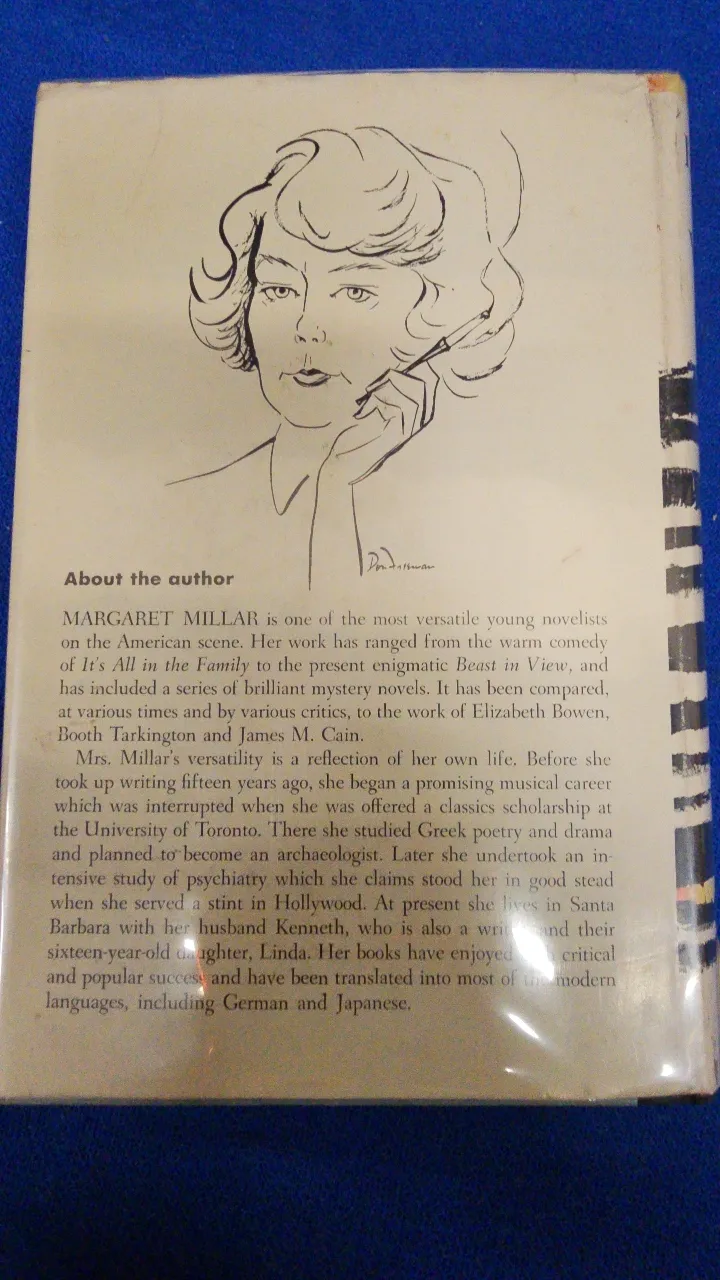 About the author
MARGARET MILLAR is one of the most versatile young novelists
on the American scene. Her work has ranged from the warm comedy
of It's All in the Family to the present enigmatic Beast in View, and
has included a series of brilliant mystery novels. It has been compared,
at various times and by various critics, to the work of Elizabeth Bowen,
Booth Tarkington and James M. Cain.
Mrs. Millar's versatility is a reflection of her own life. Before she
took up writing fifteen years ago, she began a promising musical career
which was interrupted when she was offered a classics scholarship at
the University of Toronto. There she studied Greek poetry and drama
and planned to become an archaeologist. Later she undertook an in-
tensive study of psychiatry which she claims stood her in good stead
when she served a stint in Hollywood. At present she lives in Santa
Barbara with her husband Kenneth, who is also a and their
sixteen-year-old daughter, Linda. Her books have enjoyed critical
and popular success and have been translated into most of modern
languages, including German and Japanese.